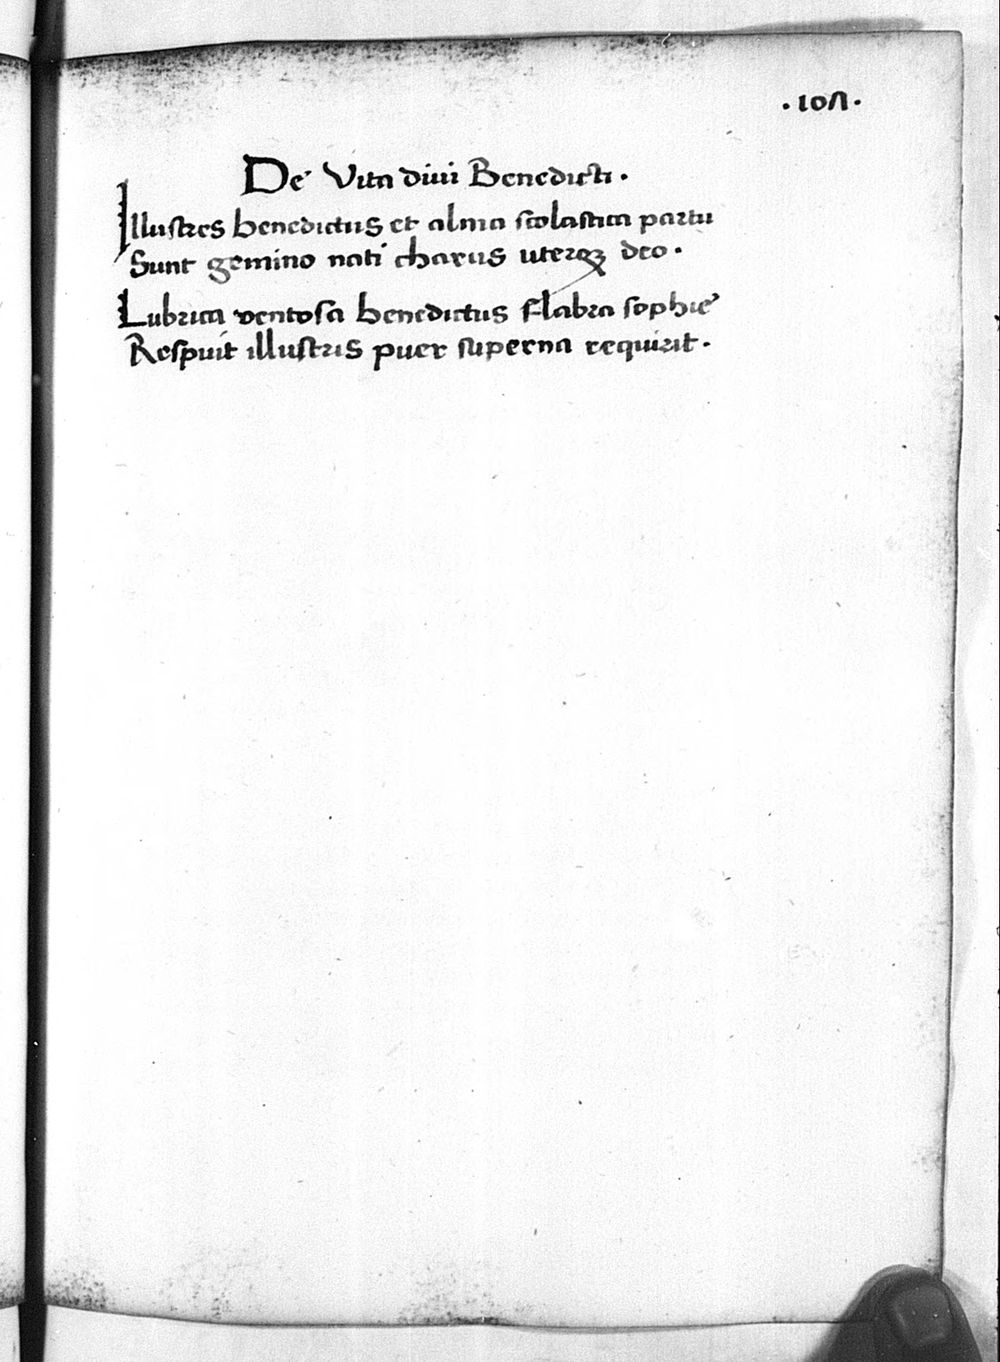 ·107·
De Vita diui Benedicti·
Illustres benedictus et alma scolastica partu
Sunt gemino nati charus uterqꝫ deo·
Lubrica ventosa benedictus flabra sophie
Respuit illustris puer superna requirit·